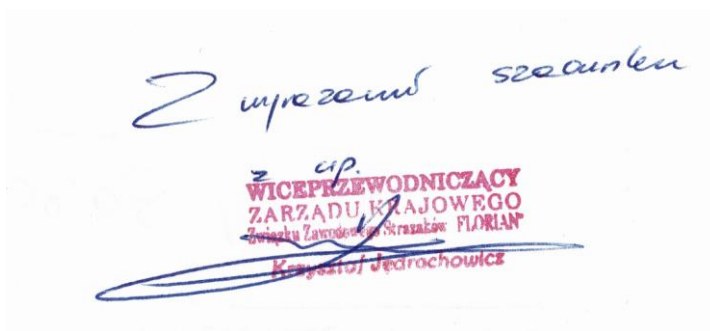 Z wyrazami szacunku
z up.
WICEPRZEWODNICZĄCY
ZARZĄDU KRAJOWEGO
Związku Zawodowego Strażaków "FLORIAN"
Krzysztof Jędrachowicz